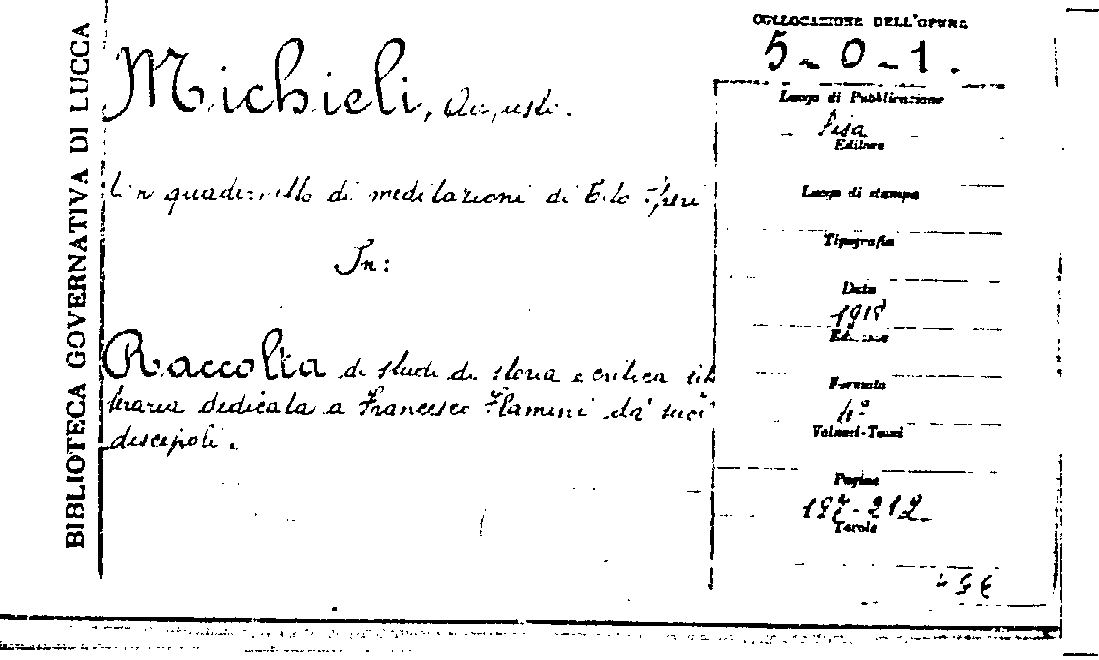 BIBLIOTECA GOVERNATIVA DI LUCCA
Michieli, Augusto.
Un quadernetto di meditazioni di Tito Speri
In:
Raccolta di studi di storia e critica let
teraria dedicata a Francesco Flamini da' suoi
discepoli.
COLLOCAZIONE DELL'OPERA
5-0-1.
Luogo di Pubblicazione
Pisa
Editore
Luogo di stampa
Tipografia
Data
1918
Edizione
Formato
4º
Volumi-Tomi
Pagine
-212
Tavole